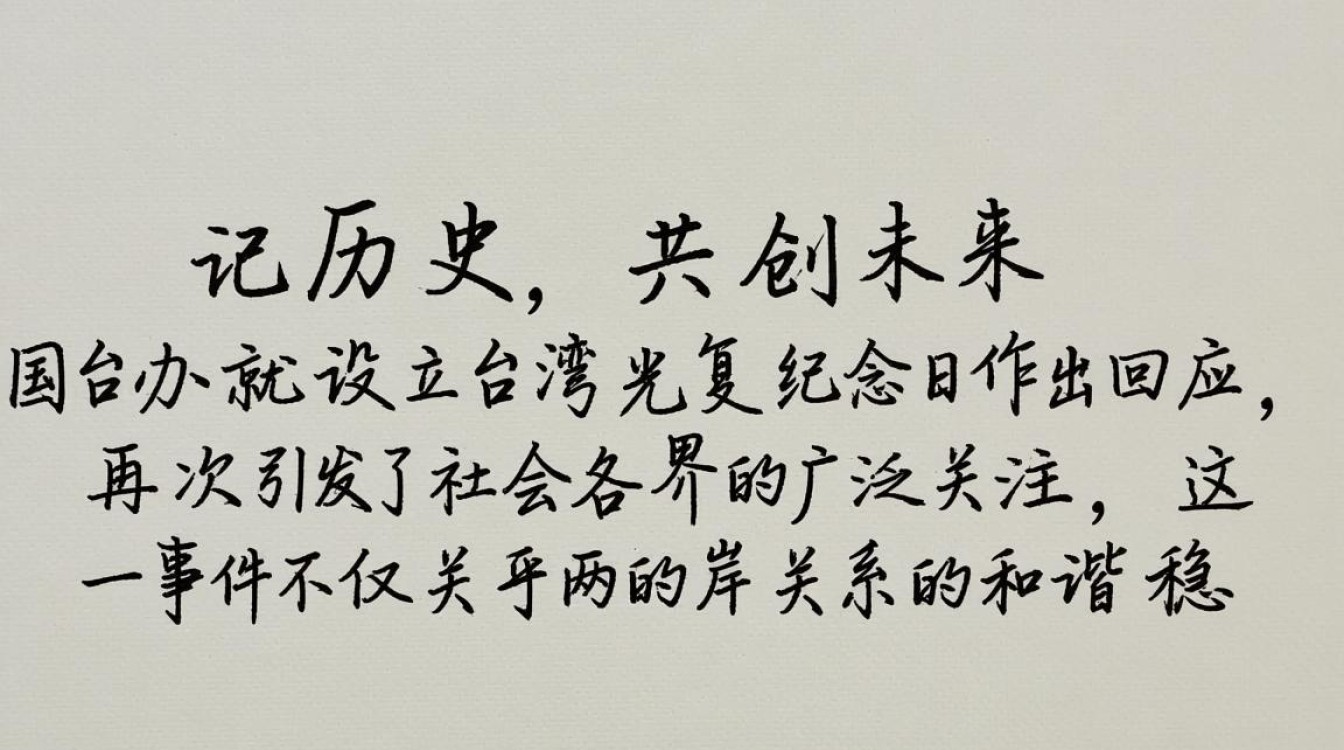 记历史，共创未来
国台办就设立台湾光复纪念日作出回应，
再次引发了社会各界的广泛关注，这
一事件不仅关乎两的岸关系的和谐稳